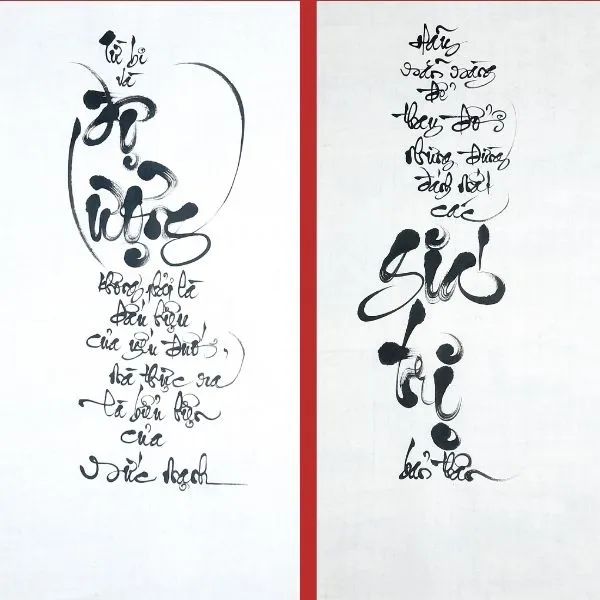 Từ bi
và
độ
lượng
không phải là
dấu hiệu
của yếu đuối,
mà thực ra
là biểu hiện
của
sức mạnh
Hãy
sẵn sàng
để
thay đổi
nhưng đừng
đánh mất
các
giá
trị
bản thân